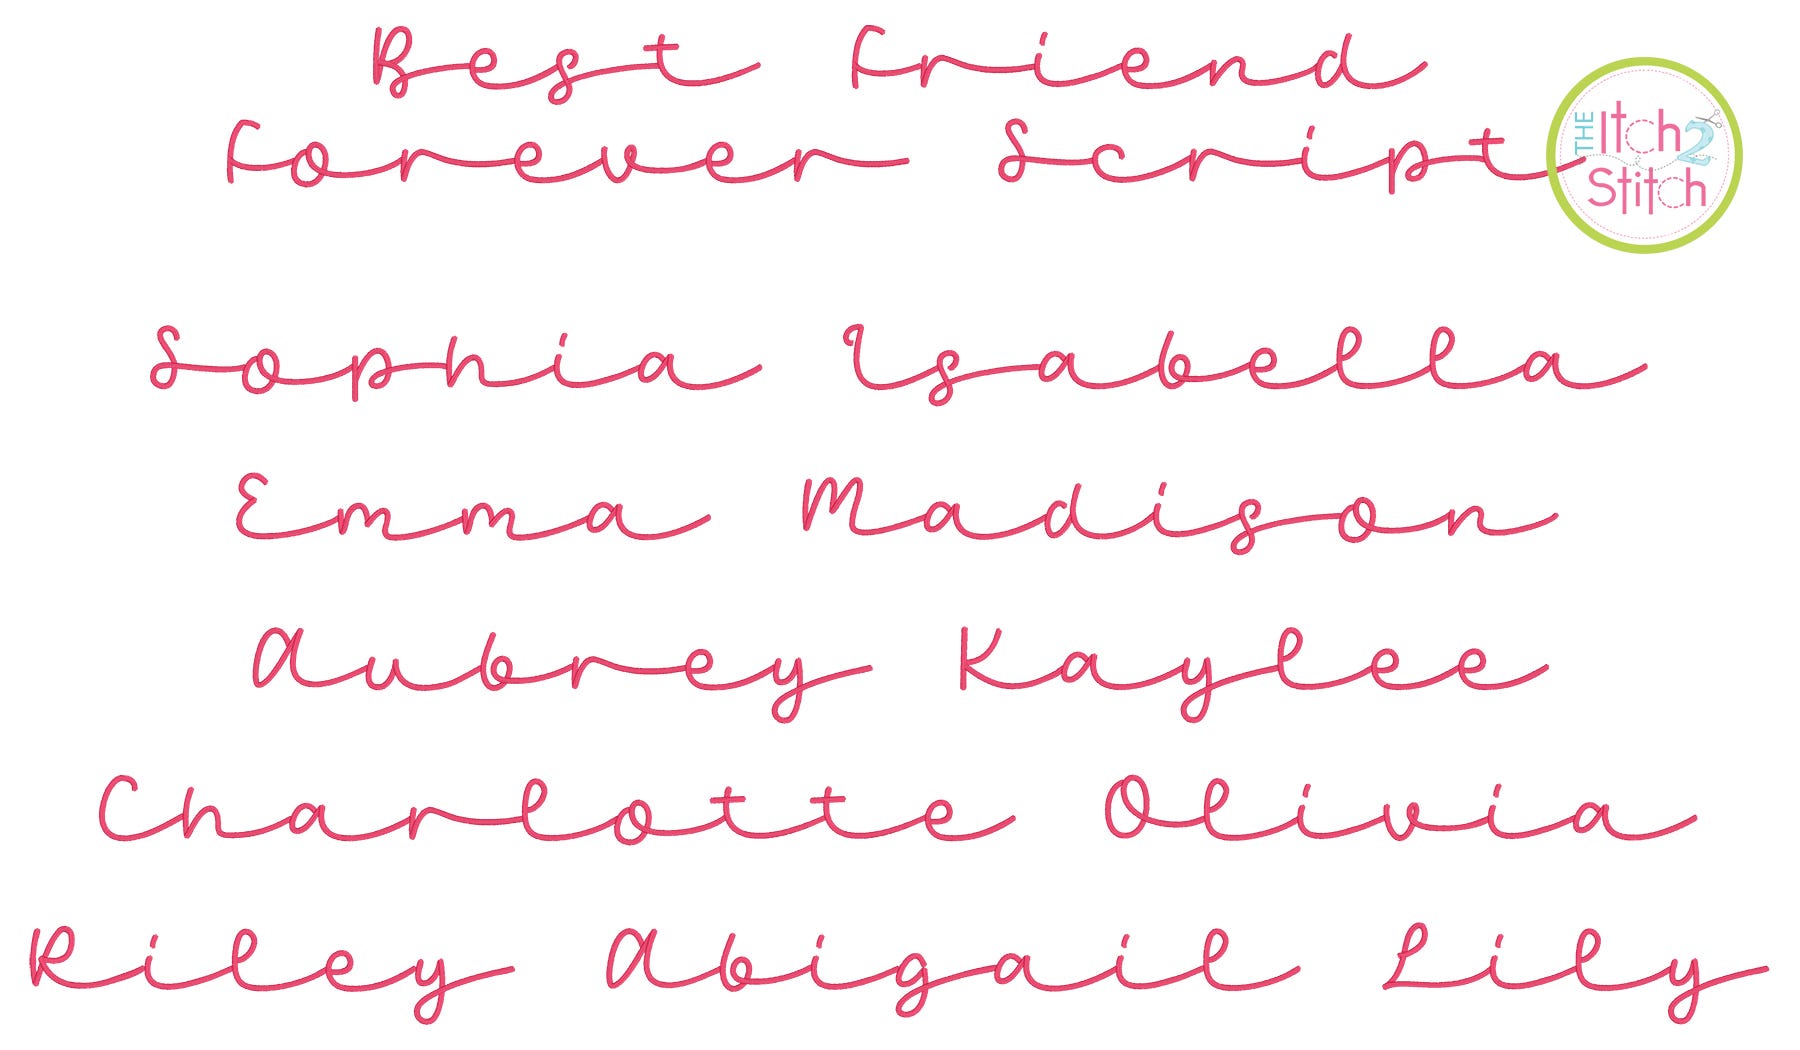 Best Friend
Forever Script
THE Itch 2 Stitch
Sophia Isabella
Emma Madison
Aubrey Kaylee
Charlotte Olivia
Riley Abigail Lily